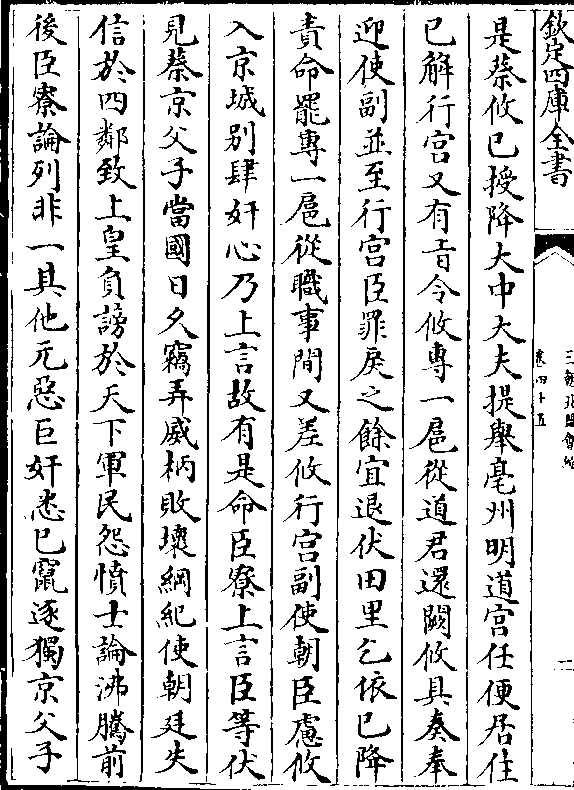 欽定四庫全書
三朝北盟會編
卷四十五
是蔡攸已授降大中大夫提舉亳州明道宮任便居住
已解行宮又有㫖令攸專一扈從道君還闕攸具奏奉
迎使副並至行宮臣罪戾之餘宜退伏田里乞依已降
責命罷專一扈從職事間又差攸行宮副使朝臣慮攸
入京城别肆奸心乃上言故有是命臣寮上言臣等伏
見蔡京父子當國日久竊弄威柄敗壞綱紀使朝廷失
信於四鄰致上皇負謗於天下軍民怨憤士論沸騰前
後臣寮論列非一其他元惡巨奸悉已竄逐獨京父子